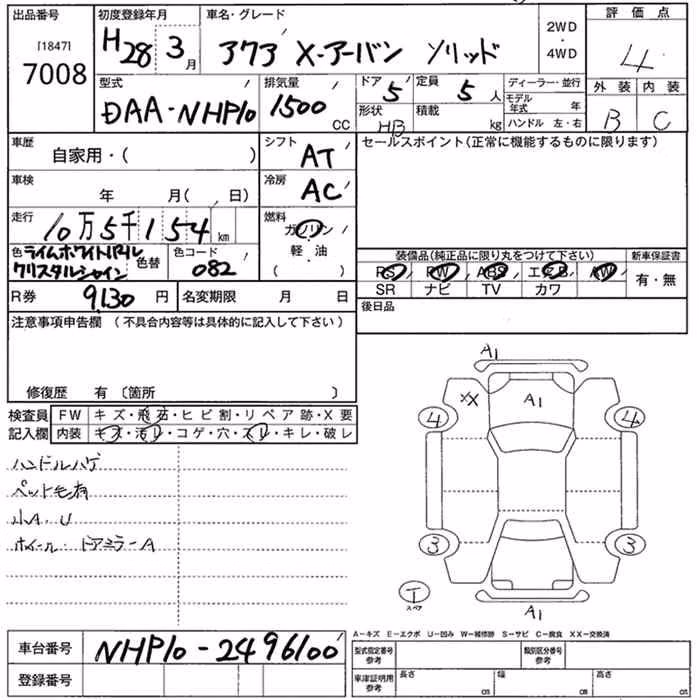 出品番号 初度登録年月 車名・グレード 2WD・4WD 評価点
[1847]
7008 H28 3月 アクア X-アーバン ソリッド 4
型式 排気量 ドア 定員 ディーラー・並行 外装 内装
DAA-NHP10 1500 CC 5 5人 モデル年式 年 B C
形状 HB 積載 kg ハンドル 左・右
車歴 自家用・( ) シフト AT セールスポイント(正常に機能するものに限ります)
車検 年 月( 、日) 冷房 AC
走行 10万5千154 km 燃料 ガソリン・軽・油・( )
色 ライムホワイトパール
クリスタルシャイン 色替 色コード 082
装備品(純正品に限り丸をつけて下さい) 新車保証書
PS PW ABS エアB AW 有・無
SR ナビ TV カワ
R券 9130円 名変期限 月 日 後日品
注意事項申告欄 (不具合内容等は具体的に記入して下さい)
修復歴 有 〔箇所 〕
検査員 FW キズ・飛石・ヒビ割・リペア跡・X要
記入欄 内装 キズ・汚レ・コゲ・穴・スレ・キレ・破レ
ハンドルハゲ
ペット毛有
小A・U
ホイール・ドアミラーA
A1
XX A1
4 4
3 3
T
スペア
A1
A-キズ E-エクボ U-凹み W-補修跡 S-サビ C-腐食 XX-交換済
車台番号 NHP10-2496100
登録番号
型式指定番号 参考 類別区分番号 参考
車庫証明用 参考 長さ cm 幅 cm 高さ cm